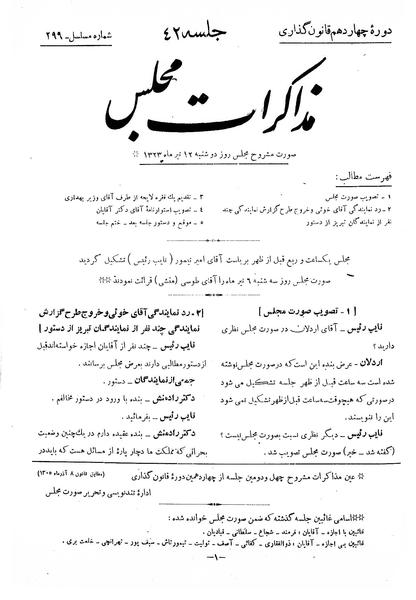 دورهٔ چهاردهم قانون گذاری
جلسه ۴۲
شماره مسلسل - ۲۹۹
مذاکرات مجلس
صورت مشروح مجلس روز دوشنبه ۱۲ تیر ماه ۱۳۲۳ *
فهرست مطالب:
۱ - تصویب صورت مجلس
۲ - رد نمایندگی آقای خوئی و خروج طرح گزارش نمایندگی چند
نفر از نمایندگان تبریز از دستور
۳ - تقدیم یک فقره لایحه از طرف آقای وزیر بهداری
۴ - تصویب استوارنامهٔ آقای دکتر آقایان
۵ - موقع و دستور جلسه بعد - ختم جلسه
مجلس یکساعت و ربع قبل از ظهر بریاست آقای امیر تیمور (نایب رئیس) تشکیل گردید
صورت مجلس روز سه شنبه ۶ تیر ماه را آقای طوسی (منشی) قرائت نمودند **
[۱ - تصویب صورت مجلس]
نایب رئیس - آقای اردلان در صورت مجلس نظری
دارید؟
اردلان - عرض بنده این است که در صورت مجلس نوشته
شده است سه ساعت قبل از ظهر جلسه تشکیل می شود
در صورتی که هیچوقت سه ساعت قبل از ظهر تشکیل نمی شود
این را ننویسند.
نایب رئیس - دیگر نظری نسبت بصورت مجلس نیست؟
(گفته شد - خیر) صورت مجلس تصویب شد.
[۲- رد نمایندگی آقای خوئی و خروج طرح گزارش
نمایندگی چند نفر از نمایندگان تبریز از دستور]
نایب رئیس - چند نفر از آقایان اجازه خواسته‌اند قبل
از دستور مطالبی دارند بعرض مجلس برسانند.
جمعی از نمایندگان - دستور.
دکتر رادمنش - بنده با ورود در دستور مخالفم.
نایب رئیس - بفرمائید.
دکتر رادمنش - بنده عقیده دارم در یک چنین وضعیت
بحرانی که مملکت ما دچار پارهٔ از مسائل است که باید در
* عین مذاکرات مشروح چهل و دومین جلسه از چهاردهمین دورهٔ قانون گذاری
(مطابق قانون ۸ آذر ماه ۱۳۰۵)
ادارهٔ تندنویسی و تحریر صورت مجلس
** اسامی غائبین جلسه گذشته که ضمن صورت مجلس خوانده شده:
غائبین با اجازه - آقایان: فرمند - شجاع - سلطانی - قبادیان.
غائبین بی اجازه - آقایان: ذوالفقاری - کفائی - آصف - تولیت - تیمورتاش - سیف پور - تهرانچی - خلعت بری.
-۱-